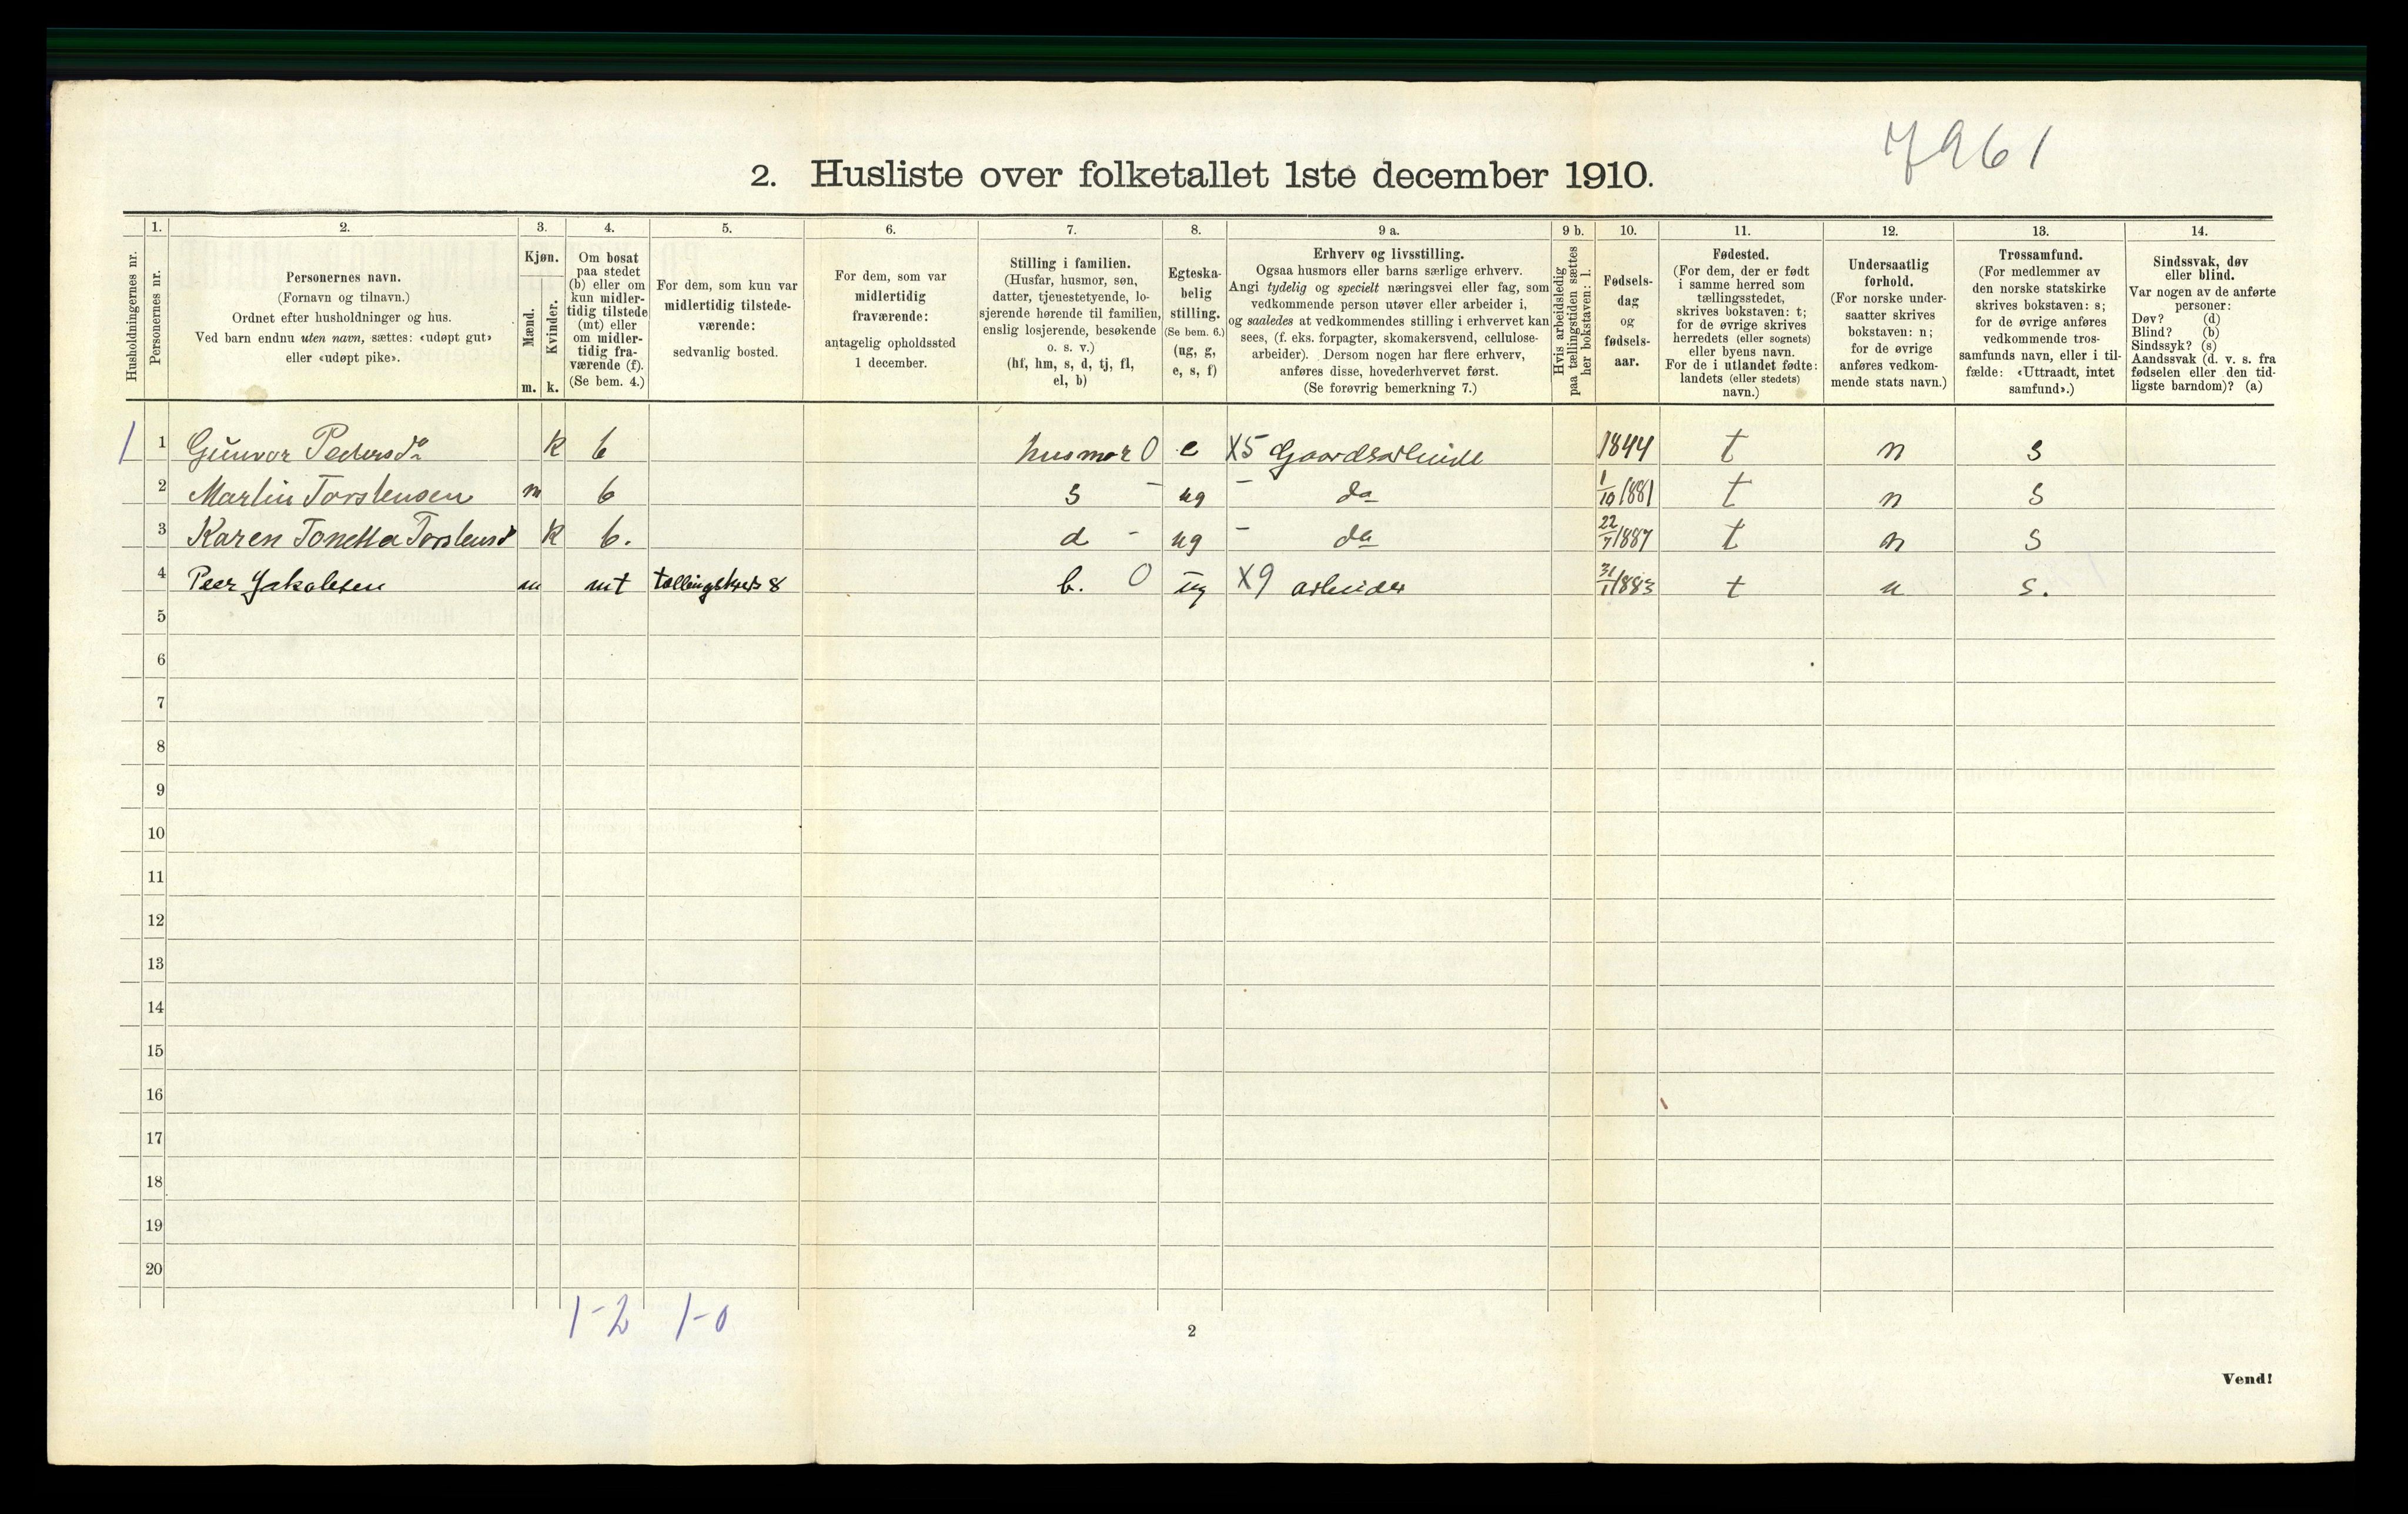 7961
2. Husliste over folketallet 1ste december 1910.
Husholdningernes nr.
1.
Personernes nr.
2.
Personernes navn.
(Fornavn og tilnavn.)
Ordnet efter husholdninger og hus.
Ved barn endnu uten navn, sættes: «udøpt gut»
eller «udøpt pike».
3.
Kjøn.
Mænd.
Kvinder.
m. k.
4.
Om bosat
paa stedet
(b) eller om
kun midler-
tidig tilstede
(mt) eller
om midler-
tidig fra-
værende (f).
(Se bem. 4.)
5.
For dem, som kun var
midlertidig tilstede-
værende:
sedvanlig bosted.
6.
For dem, som var
midlertidig
fraværende:
antagelig opholdssted
1 december.
7.
Stilling i familien.
(Husfar, husmor, søn,
datter, tjenestetyende, lo-
sjerende hørende til familien,
enslig losjerende, besøkende
o. s. v.)
(hf, hm, s, d, tj, fl,
el, b)
8.
Egteska-
belig
stilling.
(Se bem. 6.)
(ug, g,
e, s, f)
9 a.
Erhverv og livsstilling.
Ogsaa husmors eller barns særlige erhverv.
Angi tydelig og specielt næringsvei eller fag, som
vedkommende person utøver eller arbeider i,
og saaledes at vedkommendes stilling i erhvervet kan
sees, (f. eks. forpagter, skomakersvend, cellulose-
arbeider). Dersom nogen har flere erhverv,
anføres disse, hovederhvervet først.
(Se forøvrig bemerkning 7.)
9 b.
Hvis arbeidsledig
paa tællingstiden sættes
her bokstaven: l.
10.
Fødsels-
dag
og
fødsels-
aar.
11.
Fødested.
(For dem, der er født
i samme herred som
tællingsstedet,
skrives bokstaven: t;
for de øvrige skrives
herredets (eller sognets)
eller byens navn.
For de i utlandet fødte:
landets (eller stedets)
navn.)
12.
Undersaatlig
forhold.
(For norske under-
saatter skrives
bokstaven: n;
for de øvrige
anføres vedkom-
mende stats navn.)
13.
Trossamfund.
(For medlemmer av
den norske statskirke
skrives bokstaven: s;
for de øvrige anføres
vedkommende tros-
samfunds navn, eller i til-
fælde: «Uttraadt, intet
samfund».)
14.
Sindssvak, døv
eller blind.
Var nogen av de anførte
personer:
Døv? (d)
Blind? (b)
Sindssyk? (s)
Aandssvak (d. v. s. fra
fødselen eller den tid-
ligste barndom)? (a)
1 1 Gunvor Pedersd. k b husmor 0 e X5 Gaardsarbeide 1844 t n s
2 Martin Torstensen m b s - ug - do 1/10 1881 t n s
3 Karen Tonetta Torstensd k b. d - ug - do 22/7 1887 t n s
4 Peer Jakobsen m mt tællingskreds 8 b. 0 ug X9 arbeider 31/1 1883 t n s.
5
6
7
8
9
10
11
12
13
14
15
16
17
18
19
20
1-2 1-0
2
Vend!